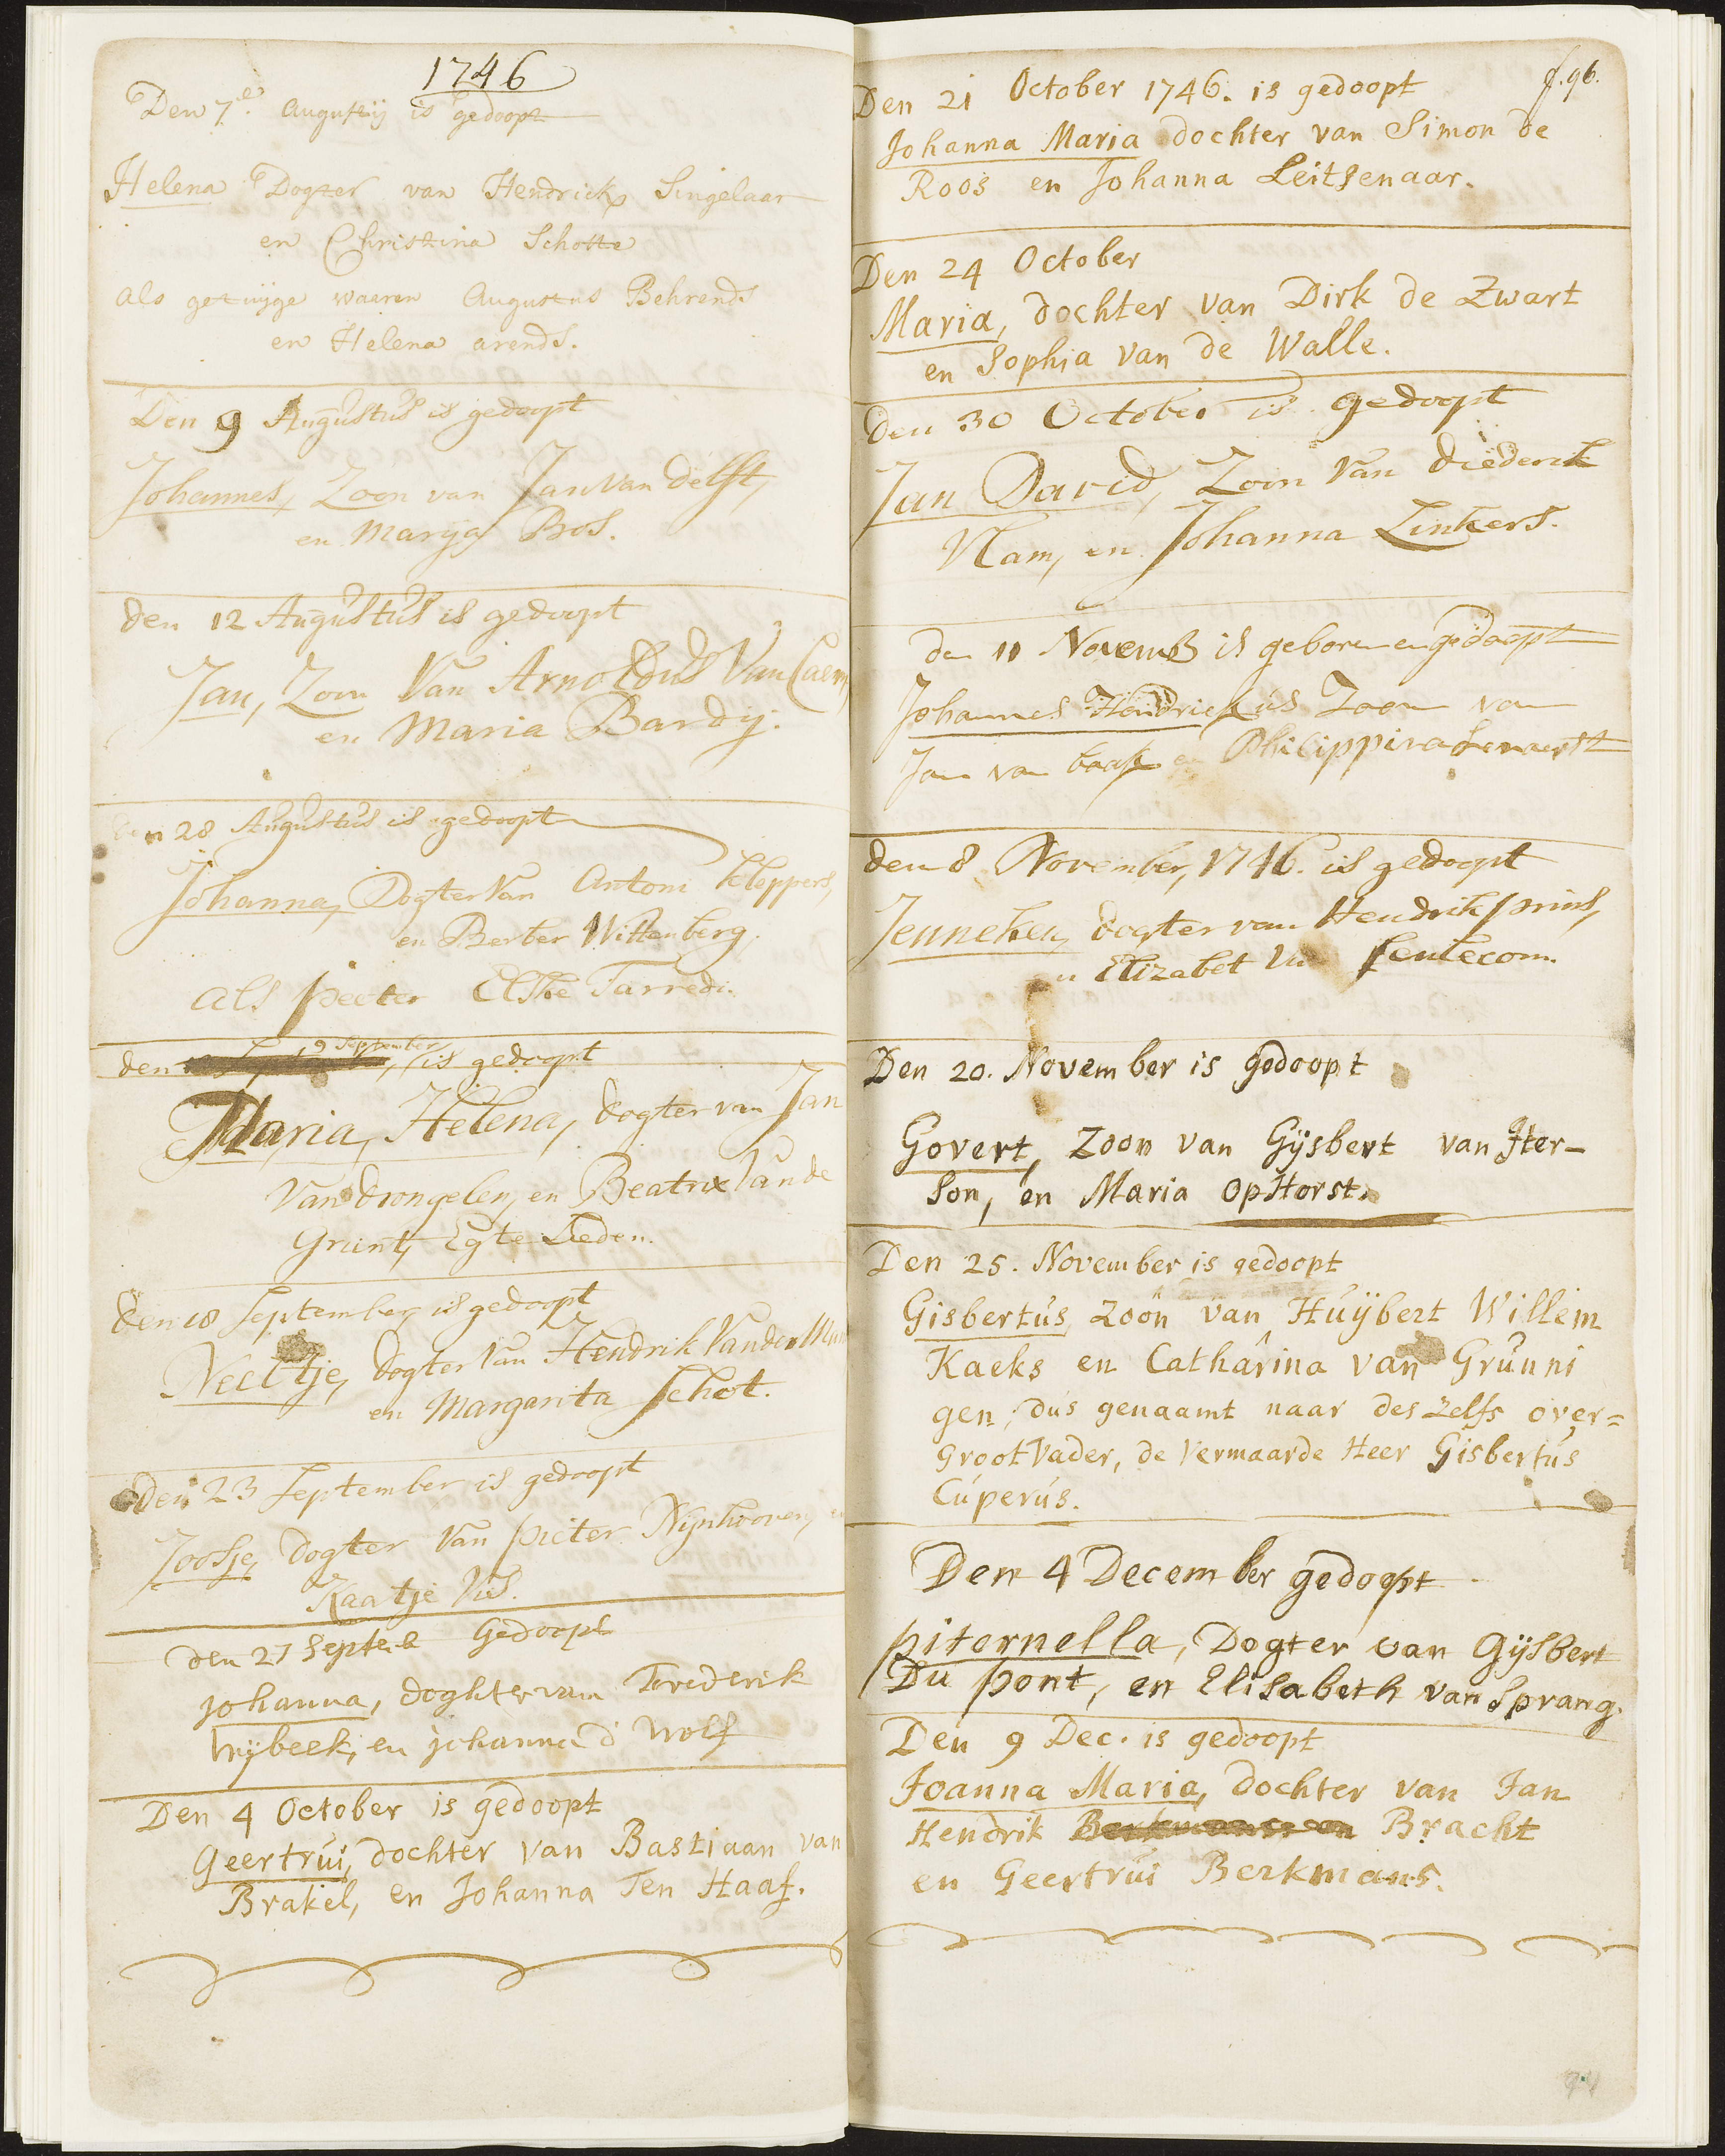 1746
Den 7de Augustij is gedoopt
Helena Dogter van Hendrick Singelaar
en Christina Schotte
als getuijge waeren Augustus Behrends
en Helena arends.
Den 9 Augustus is gedoopt
Johannes, Zoon van Jan van Delft,
en Marija Bos.
den 12 Augustus is gedoopt
Jan, Zoon Van Arnoldus Van
en Maria Bardij.
den 28 Augustus is gedoopt
Johanna, Dogter Van Antoni Kleppers,
en Berber Wittenberg.
als peeter Elske Tarredi.
den 9 September, is gedoopt
Maria, Helena, dogter van Jan
Van drongelen, en Beatrix Van de
Grint, Egte Lieden.
den 18 September is gedoopt
Neeltje, dogter Van Hendrik Van der
en Margarita Schot.
Den 23 September is gedoopt
Joosje, Dogter Van pieter Nijnhooven, en
Kaatje Vis.
den 27 Septeb Gedoopt
johanna, doghter van Frederik
en johanna d' Wolf
Den 4 October is gedoopt
Geertrui, dochter van Bastiaan van
Brakel, en Johanna Ten Haaf.
f. 96.
Den 21 October 1746. is gedoopt
Johanna Maria dochter van Simon de
Roos en Johanna Leitsenaar.
Den 24 October
Maria, dochter van Dirk de Zwart
en Sophia van de Walle.
den 30 October is gedoopt
Jan David, Zoon Van diederik
Vlam, en Johanna Linkers.
den 11 Novemb is geboren en gedoopt
Johannes Hendrickus Zoon van
Jan van en Philippina
den 8 November, 1746. is gedoopt
Jenneken, dogter van Hendrik prins,
en Elizabet
Den 20. November is gedoopt
Govert, Zoon van Gijsbert van Iter-
Son, en Maria OpHorst.
Den 25. November is gedoopt
Gisbertús, Zoon van Húijbert Willem
Kaeks en Catharina van Grunni
gen; dús genaamt naar des Zelfs over=
Groot Vader, de Vermaarde Heer Gisbertús
Cúperús.
Den 4 December gedoopt
piternella, Dogter van Gijsbert
Du pont, en Elisabeth van Sprang.
Den 9 Dec. is gedoopt
Joanna Maria, dochter van Jan
Hendrik Bracht
en Geertrúi Berkmans.